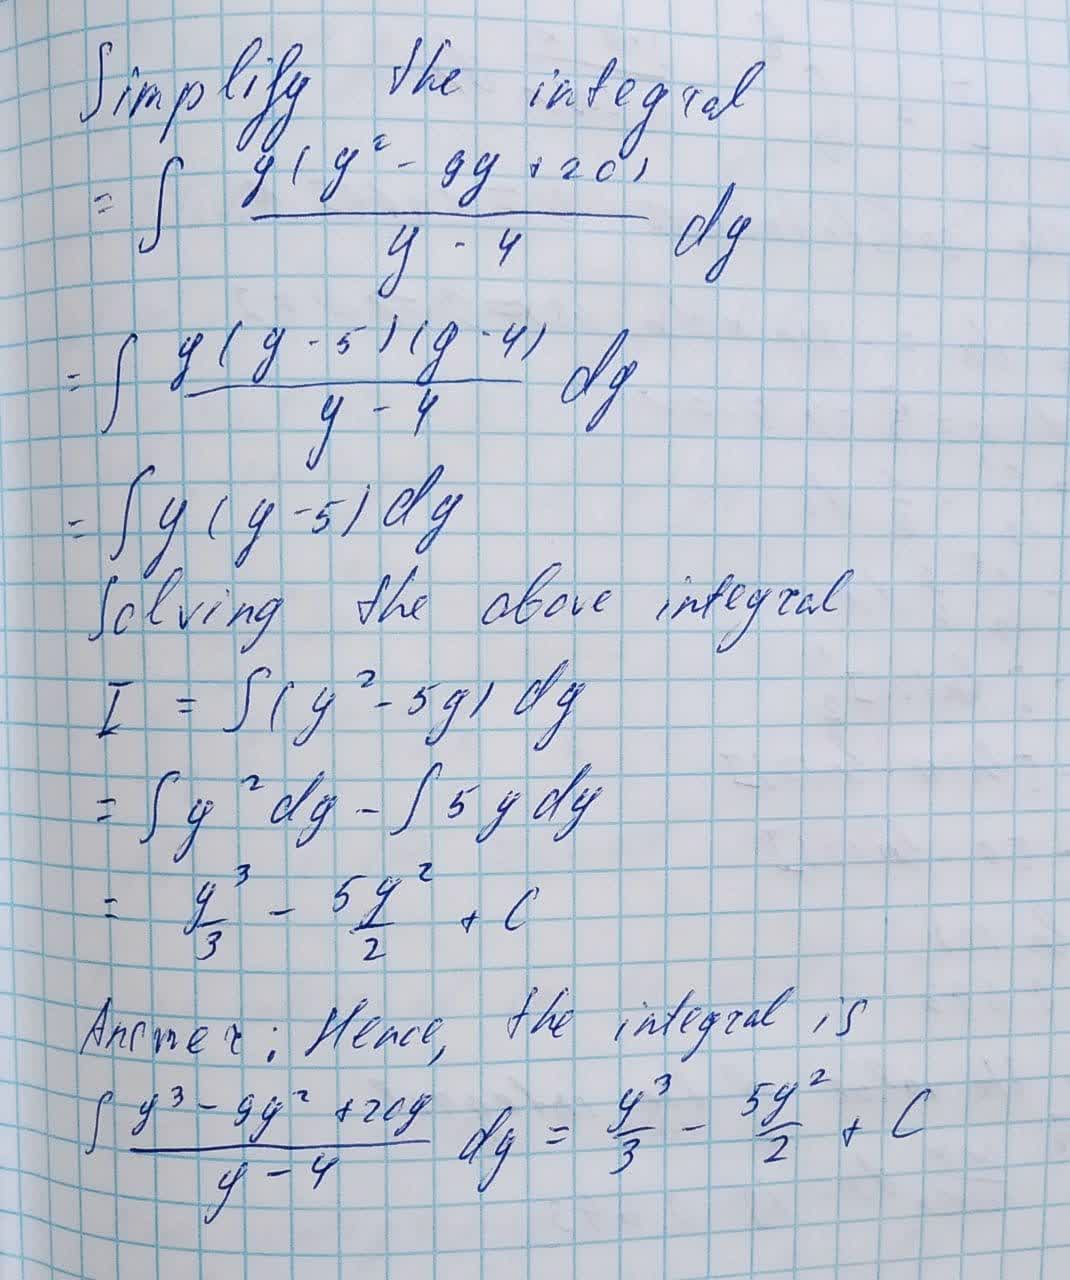 Simplify the integral
= ∫ y(y² - 9y + 20) / y - 4 dy
= ∫ y(y - 5)(y - 4) / y - 4 dy
= ∫ y(y - 5) dy
Solving the above integral
I = ∫(y² - 5y) dy
= ∫ y² dy - ∫ 5 y dy
= y³/3 - 5y²/2 + C
Answer: Hence, the integral is
∫ y³ - 9y² + 20y / y - 4 dy = y³/3 - 5y²/2 + C